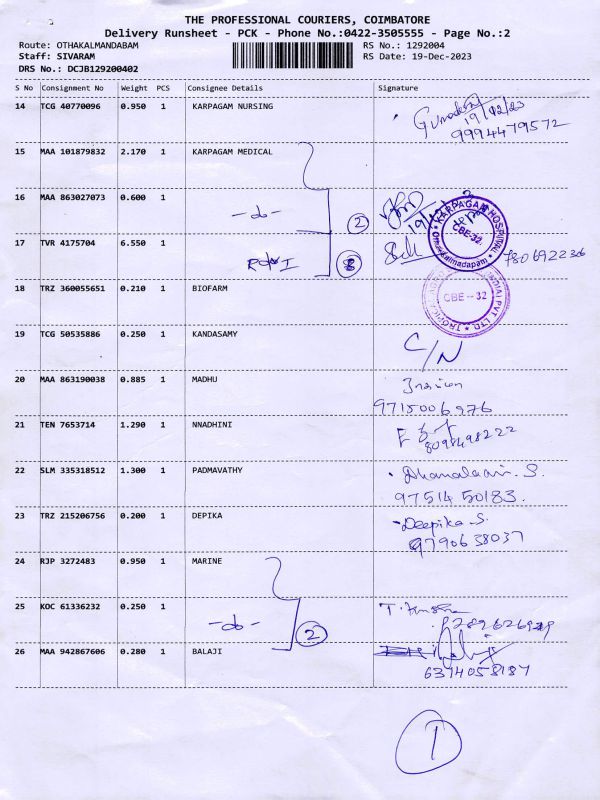 THE PROFESSIONAL COURIERS, COIMBATORE
Delivery Runsheet - PCK - Phone No.:0422-3505555 - Page No.:2
Route: OTHAKALMANDABAM RS No.: 1292004
Staff: SIVARAM RS Date: 19-Dec-2023
DRS No.: DCJB129200402
S No Consignment No Weight PCS Consignee Details Signature
14 TCG 40770096 0.950 1 KARPAGAM NURSING
19/12/23
9994479572
15 MAA 101879832 2.170 1 KARPAGAM MEDICAL
16 MAA 863027073 0.600 1
2
KARPAGAM HOSPITAL
CBE-32
17 TVR 4175704 6.550 1
18 TRZ 360055651 0.210 1 BIOFARM
CBE-32
PVT LTD
19 TCG 50535886 0.250 1 KANDASAMY C/N
20 MAA 863190038 0.885 1 MADHU
9715006976
21 TEN 7653714 1.290 1 NNADHINI
8098498222
22 SLM 335318512 1.300 1 PADMAVATHY
S.
9751450183.
23 TRZ 215206756 0.200 1 DEPIKA Deepika S.
9790638037
24 RJP 3272483 0.950 1 MARINE
25 KOC 61336232 0.250 1 -do- 2
26 MAA 942867606 0.280 1 BALAJI
6374058187
1